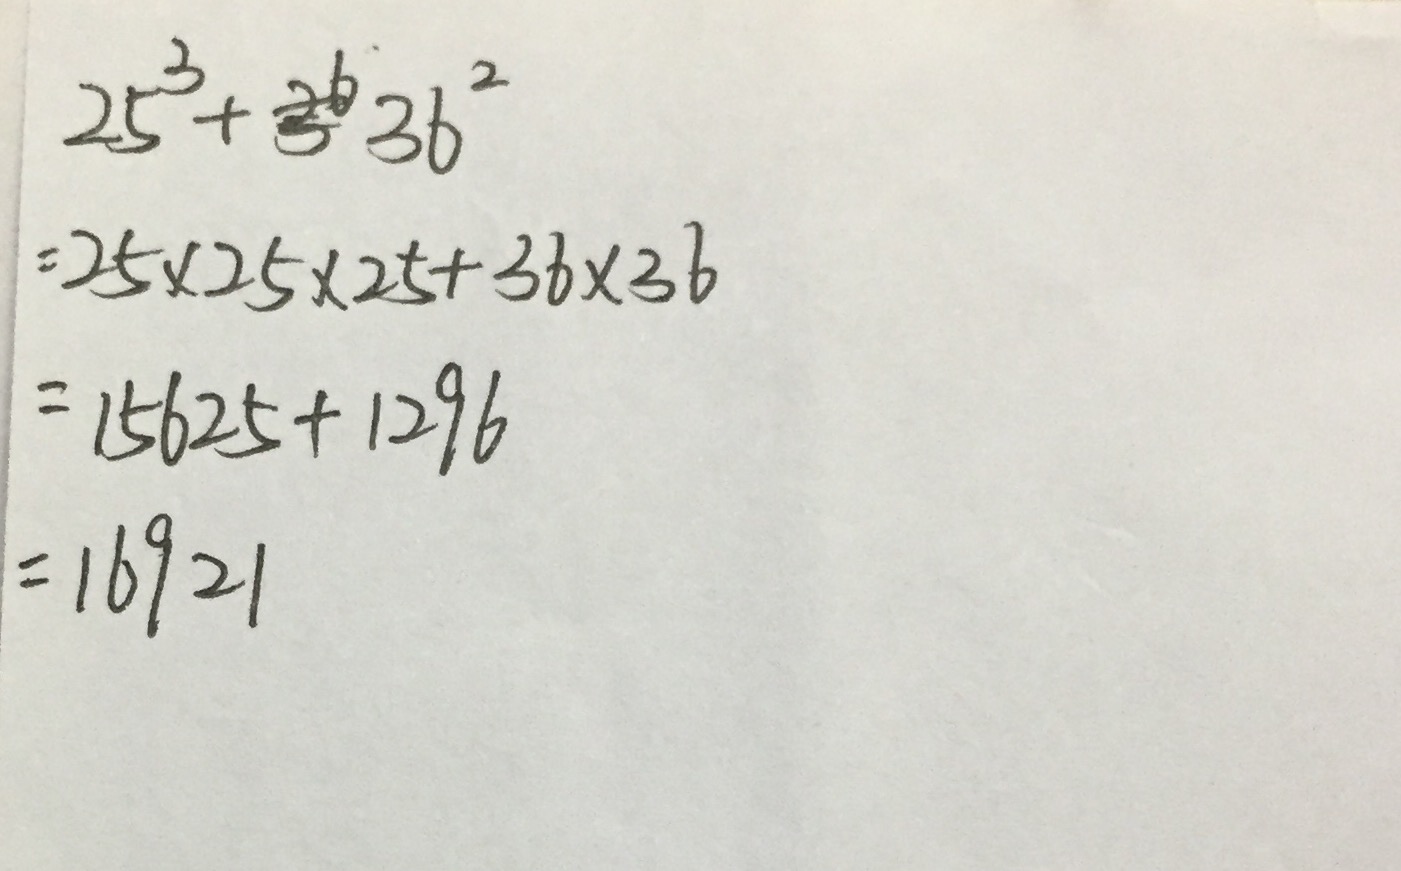 25³+36²
=25×25×25+36×36
=15625+1296
=16921